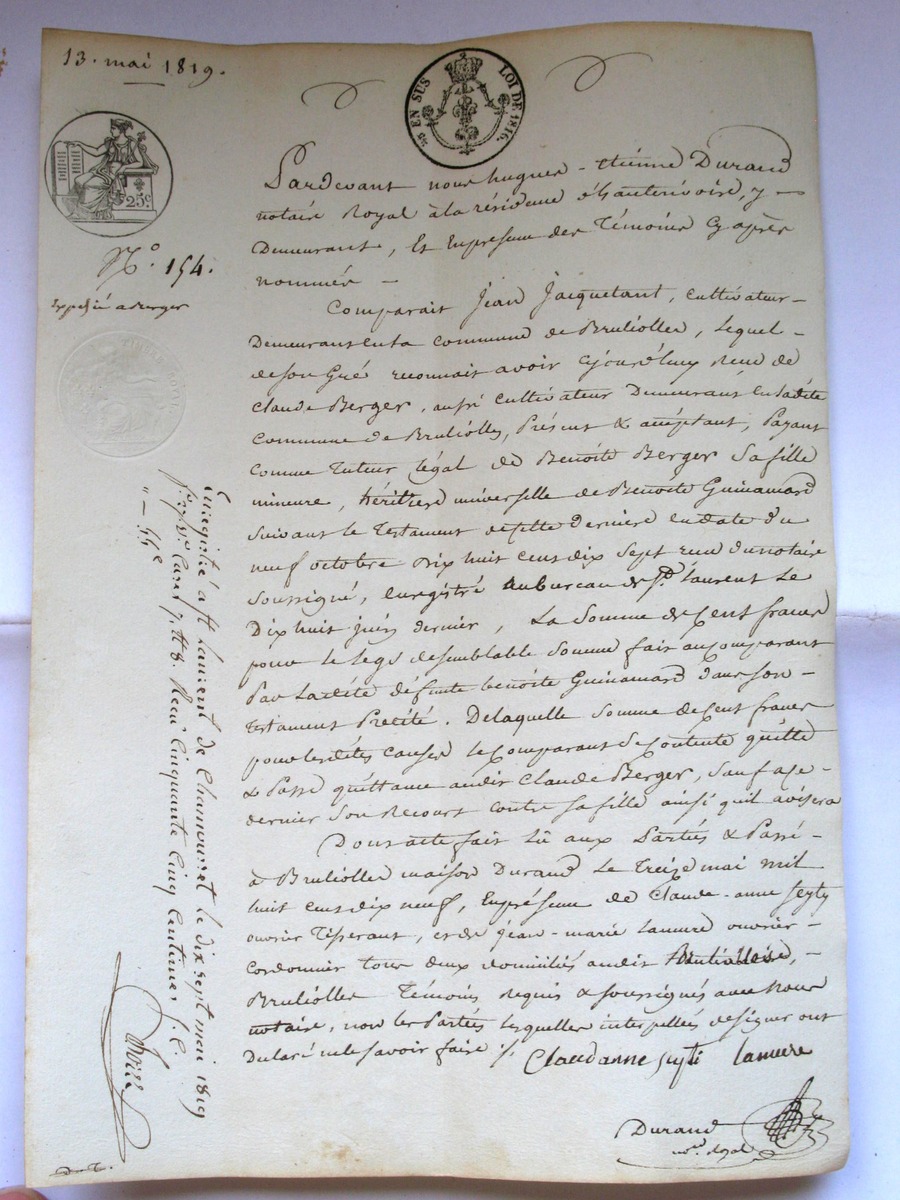 13. mai 1819.
EN SUS LOI DE 1816.
25c
N.° 154.
Expedié a Berger
Pardevant nous hugues - etienne Durand
notaire Royal à la résidence d'hauterivoire, y
Demeurant, Et En presence des Témoins Cy après
nommés
Comparait Jean Jacquetant, Cultivateur
Demeurant en la commune de Brullioles, lequel
de son Gré reconnait avoir cejourd'huy Reçu de
Claude Berger, aussi Cultivateur Demeurant en ladite
Commune de Brullioles, Présent & acceptant, Payant
Comme Tuteur légal de Benoîte Berger Sa fille
mineure, héritiere universelle de Benoîte Guinamard
Suivant le Testament de cette derniere en date du
neuf octobre Dix huit cent dix Sept reçu du notaire
Soussigné, Enregistré au bureau de St. Laurent le
Dix huit juin dernier, La Somme de Cent francs
pour le legs de semblable Somme fait au Comparant
Par Ladite défunte benoîte Guinamard dans son
Testament Précité. De laquelle Somme de Cent francs
pour les dites causes le Comparant Se Contente quitte
& Passe quittance audit Claude Berger, Sauf a ce
dernier Son Recours Contre sa fille ainsi qu'il avisera
Dont acte fait lû aux Parties & Passé
à Brullioles maison Durand Le Treize mai mil
huit cent dix neuf, En présence de Claude-anne
ouvrier Tisserant, et de jean-marie Lamure ouvrier
Cordonnier tous deux domiciliés audit
Brullioles Témoins Requis & Soussignés avec Nous
notaire, non les Parties lesquelles interpellées de signer ont
Declaré ne le savoir faire ./.
Claudanne Lamure
Durand
not. Royal
Enregistré à St Laurent de Chamousset le dix sept mai 1819
Reçu Cinquante Cinq Centimes
55c